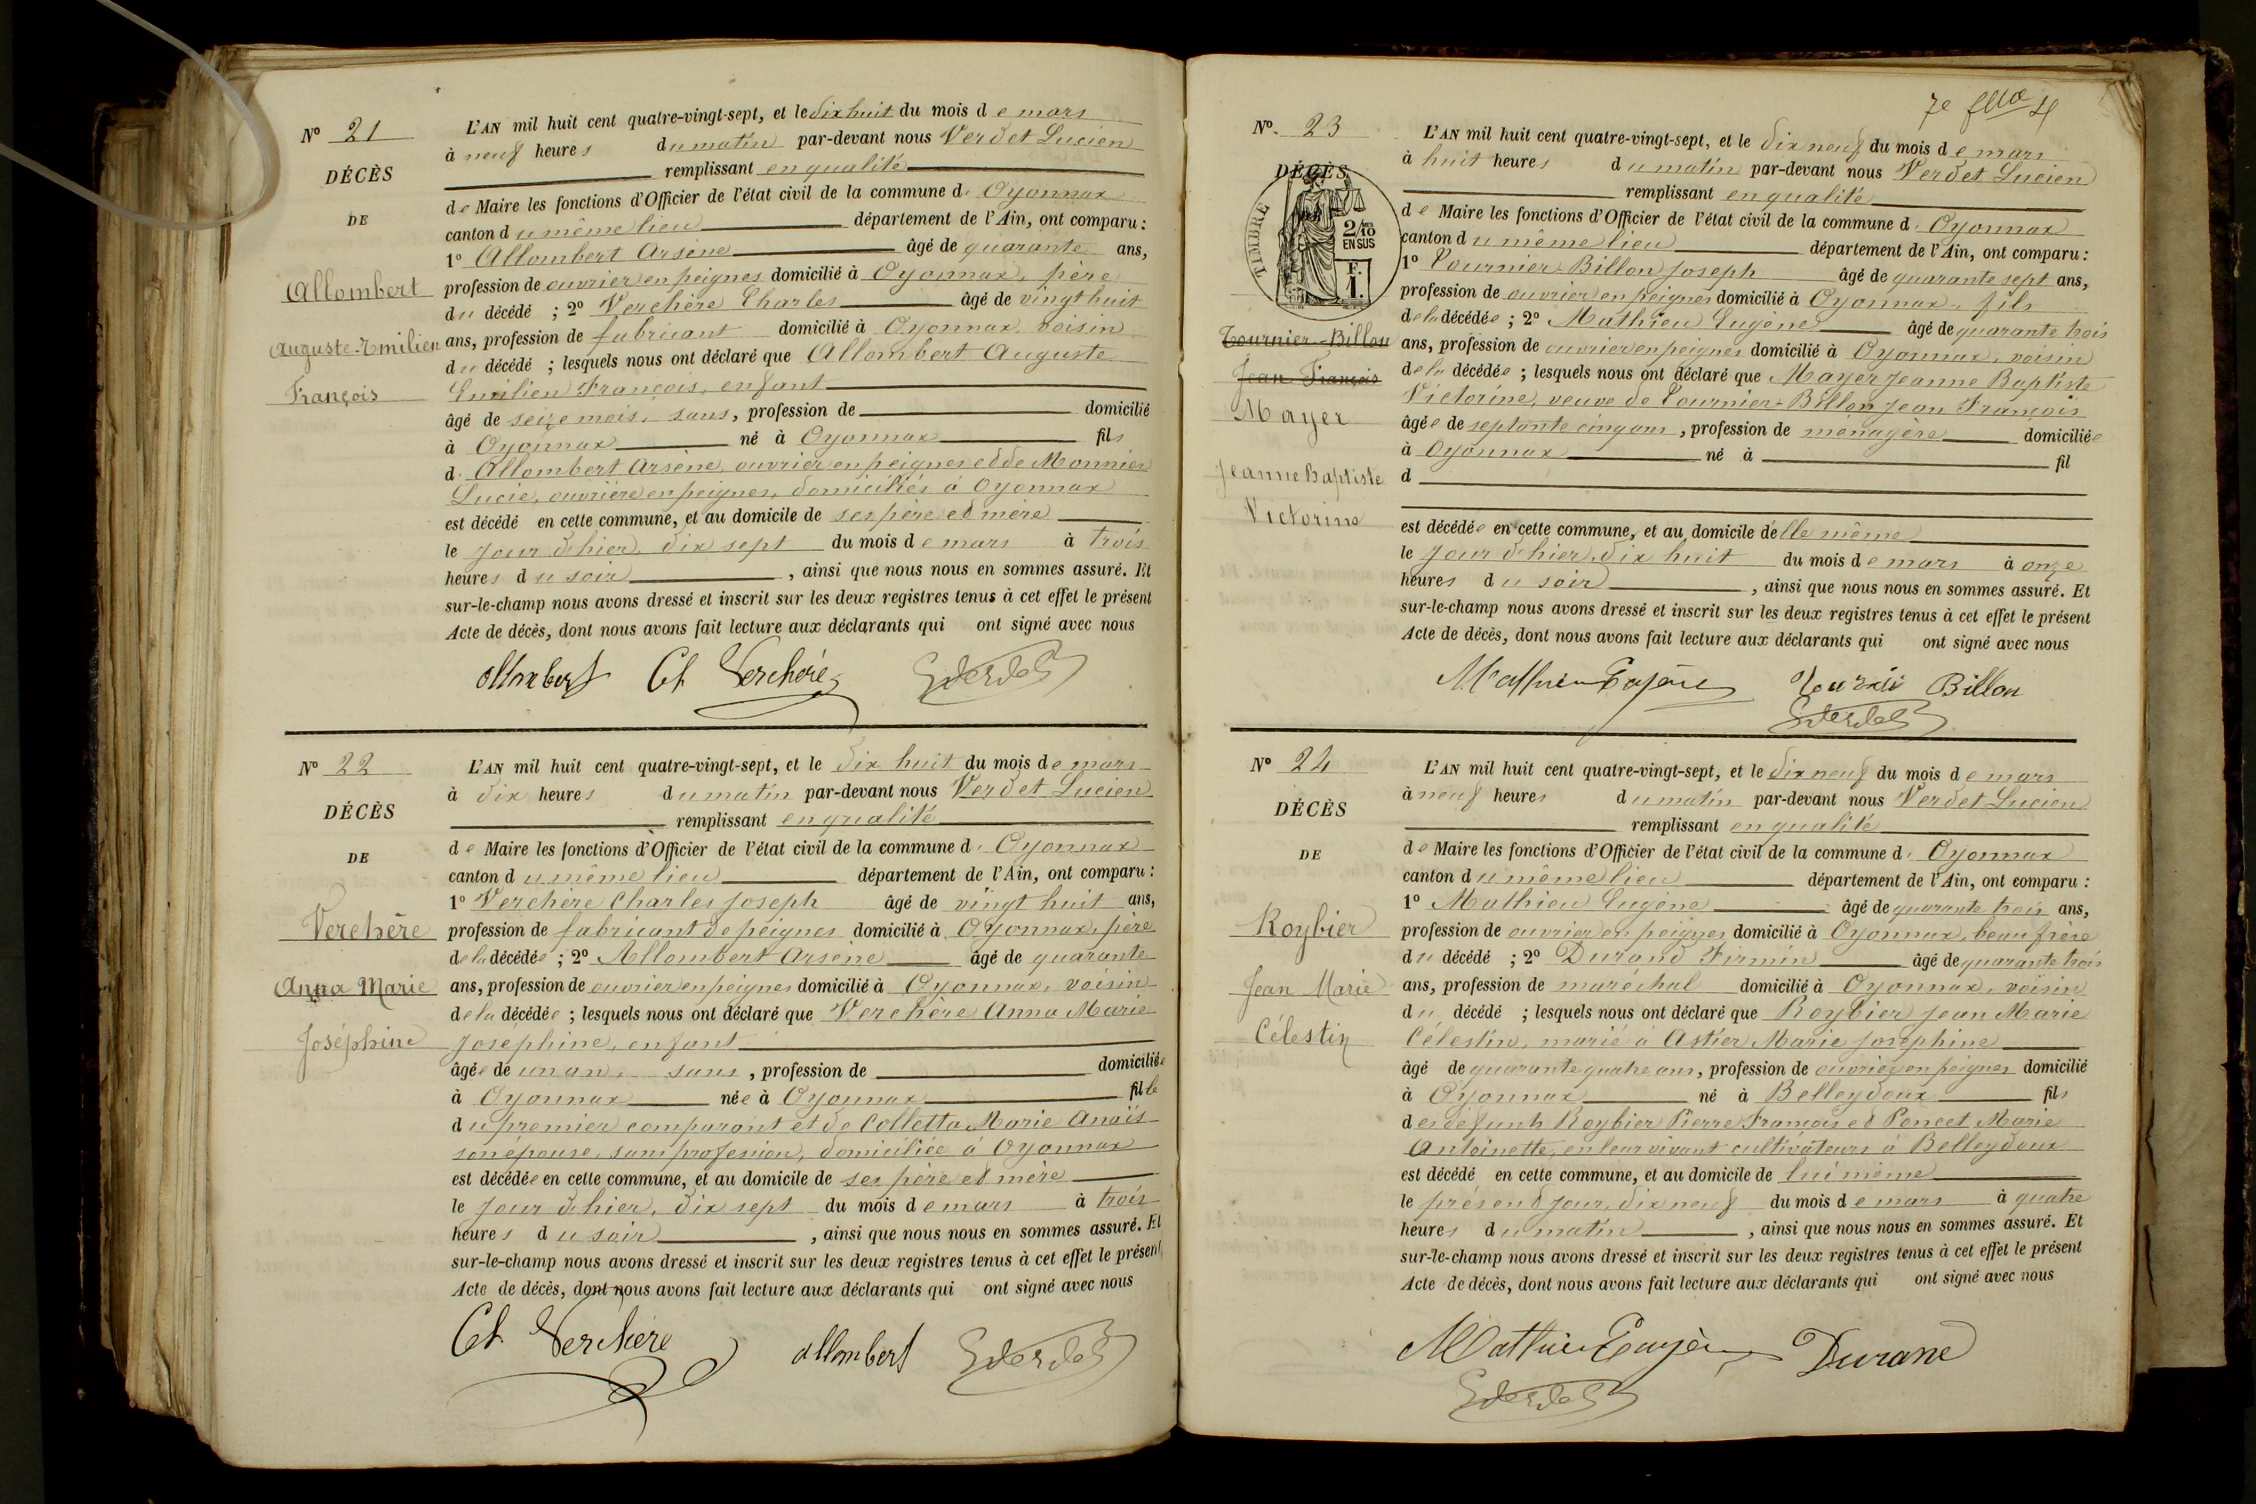 N° 21
DÉCÈS
DE
Allombert
Auguste-Emilien
François
L'AN mil huit cent quatre-vingt-sept, et le dix huit du mois de mars
à neuf heures du matin par-devant nous Verdet Lucien
remplissant en qualité
de Maire les fonctions d'Officier de l'état civil de la commune d' Oyonnax
canton du même lieu département de l'Ain, ont comparu :
1° Allombert Arsène âgé de quarante ans,
profession de ouvrier en peignes domicilié à Oyonnax, père
du décédé ; 2° Verchère Charles âgé de vingt huit
ans, profession de fabricant domicilié à Oyonnax voisin
du décédé ; lesquels nous ont déclaré que Allombert Auguste
Emilien François, enfant
âgé de seize mois, sans, profession de domicilié
à Oyonnax né à Oyonnax fils
d' Allombert Arsène, ouvrier en peignes et de Monnier
Lucie, ouvrière en peignes, domiciliés à Oyonnax
est décédé en cette commune, et au domicile de ses père et mère
le jour d'hier, dix sept du mois de mars à trois
heures du soir , ainsi que nous nous en sommes assuré. Et
sur-le-champ nous avons dressé et inscrit sur les deux registres tenus à cet effet le présent
Acte de décès, dont nous avons fait lecture aux déclarants qui ont signé avec nous
allombert Ch Verchère
N° 22
DÉCÈS
DE
Verchère
Anna Marie
Joséphine
L'AN mil huit cent quatre-vingt-sept, et le dix huit du mois de mars
à dix heures du matin par-devant nous Verdet Lucien
remplissant en qualité
de Maire les fonctions d'Officier de l'état civil de la commune d' Oyonnax
canton du même lieu département de l'Ain, ont comparu :
1° Verchère Charles Joseph âgé de vingt huit ans,
profession de fabricant de peignes domicilié à Oyonnax, père
de la décédée ; 2° Allombert Arsène âgé de quarante
ans, profession de ouvrier en peignes domicilié à Oyonnax, voisin
de la décédée ; lesquels nous ont déclaré que Verchère Anna Marie
Josephine, enfant
âgée de un an, sans , profession de domiciliée
à Oyonnax née à Oyonnax fille
du premier comparant et de Colletta Marie Anaïs
son épouse, sans profession, domiciliée à Oyonnax
est décédée en cette commune, et au domicile de ses père et mère
le jour d'hier, dix sept du mois de mars à trois
heures du soir , ainsi que nous nous en sommes assuré. Et
sur-le-champ nous avons dressé et inscrit sur les deux registres tenus à cet effet le présent
Acte de décès, dont nous avons fait lecture aux déclarants qui ont signé avec nous
Ch Verchère allombert
7e
N° 23
DÉCÈS
TIMBRE
2/10
EN SUS
F.
1.
Tournier-Billon
Jean François
Mayer
Jeanne Baptiste
Victorine
L'AN mil huit cent quatre-vingt-sept, et le dix neuf du mois de mars
à huit heures du matin par-devant nous Verdet Lucien
remplissant en qualité
de Maire les fonctions d'Officier de l'état civil de la commune d' Oyonnax
canton du même lieu département de l'Ain, ont comparu :
1° Tournier-Billon Joseph âgé de quarante sept ans,
profession de ouvrier en peignes domicilié à Oyonnax, fils
de la décédée ; 2° Mathieu Eugène âgé de quarante trois
ans, profession de ouvrier en peignes domicilié à Oyonnax, voisin
de la décédée ; lesquels nous ont déclaré que Mayer Jeanne Baptiste
Victorine, veuve de Tournier-Billon Jean François
âgée de septante cinq ans , profession de ménagère domiciliée
à Oyonnax né à fil
d
est décédée en cette commune, et au domicile d'elle même
le jour d'hier, dix huit du mois de mars à onze
heures du soir , ainsi que nous nous en sommes assuré. Et
sur-le-champ nous avons dressé et inscrit sur les deux registres tenus à cet effet le présent
Acte de décès, dont nous avons fait lecture aux déclarants qui ont signé avec nous
Mathieu Eugène Billon
N° 24
DÉCÈS
DE
Roybier
Jean Marie
Célestin
L'AN mil huit cent quatre-vingt-sept, et le dix neuf du mois de mars
à neuf heures du matin par-devant nous Verdet Lucien
remplissant en qualité
de Maire les fonctions d'Officier de l'état civil de la commune d' Oyonnax
canton du même lieu département de l'Ain, ont comparu :
1° Mathieu Eugène âgé de quarante trois ans,
profession de ouvrier en peignes domicilié à Oyonnax, beau frère
du décédé ; 2° Durand Firmin âgé de quarante trois
ans, profession de maréchal domicilié à Oyonnax, voisin
du décédé ; lesquels nous ont déclaré que Roybier Jean Marie
Célestin, marié à Astier Marie Joséphine
âgé de quarante quatre ans, profession de ouvrier en peignes domicilié
à Oyonnax né à Belleydoux fils
des défunts Roybier Pierre François et Poncet Marie
Antoinette, en leur vivant cultivateurs à Belleydoux
est décédé en cette commune, et au domicile de lui même
le présent jour, dix neuf du mois de mars à quatre
heures du matin , ainsi que nous nous en sommes assuré. Et
sur-le-champ nous avons dressé et inscrit sur les deux registres tenus à cet effet le présent
Acte de décès, dont nous avons fait lecture aux déclarants qui ont signé avec nous
Mathieu Eugène Durand